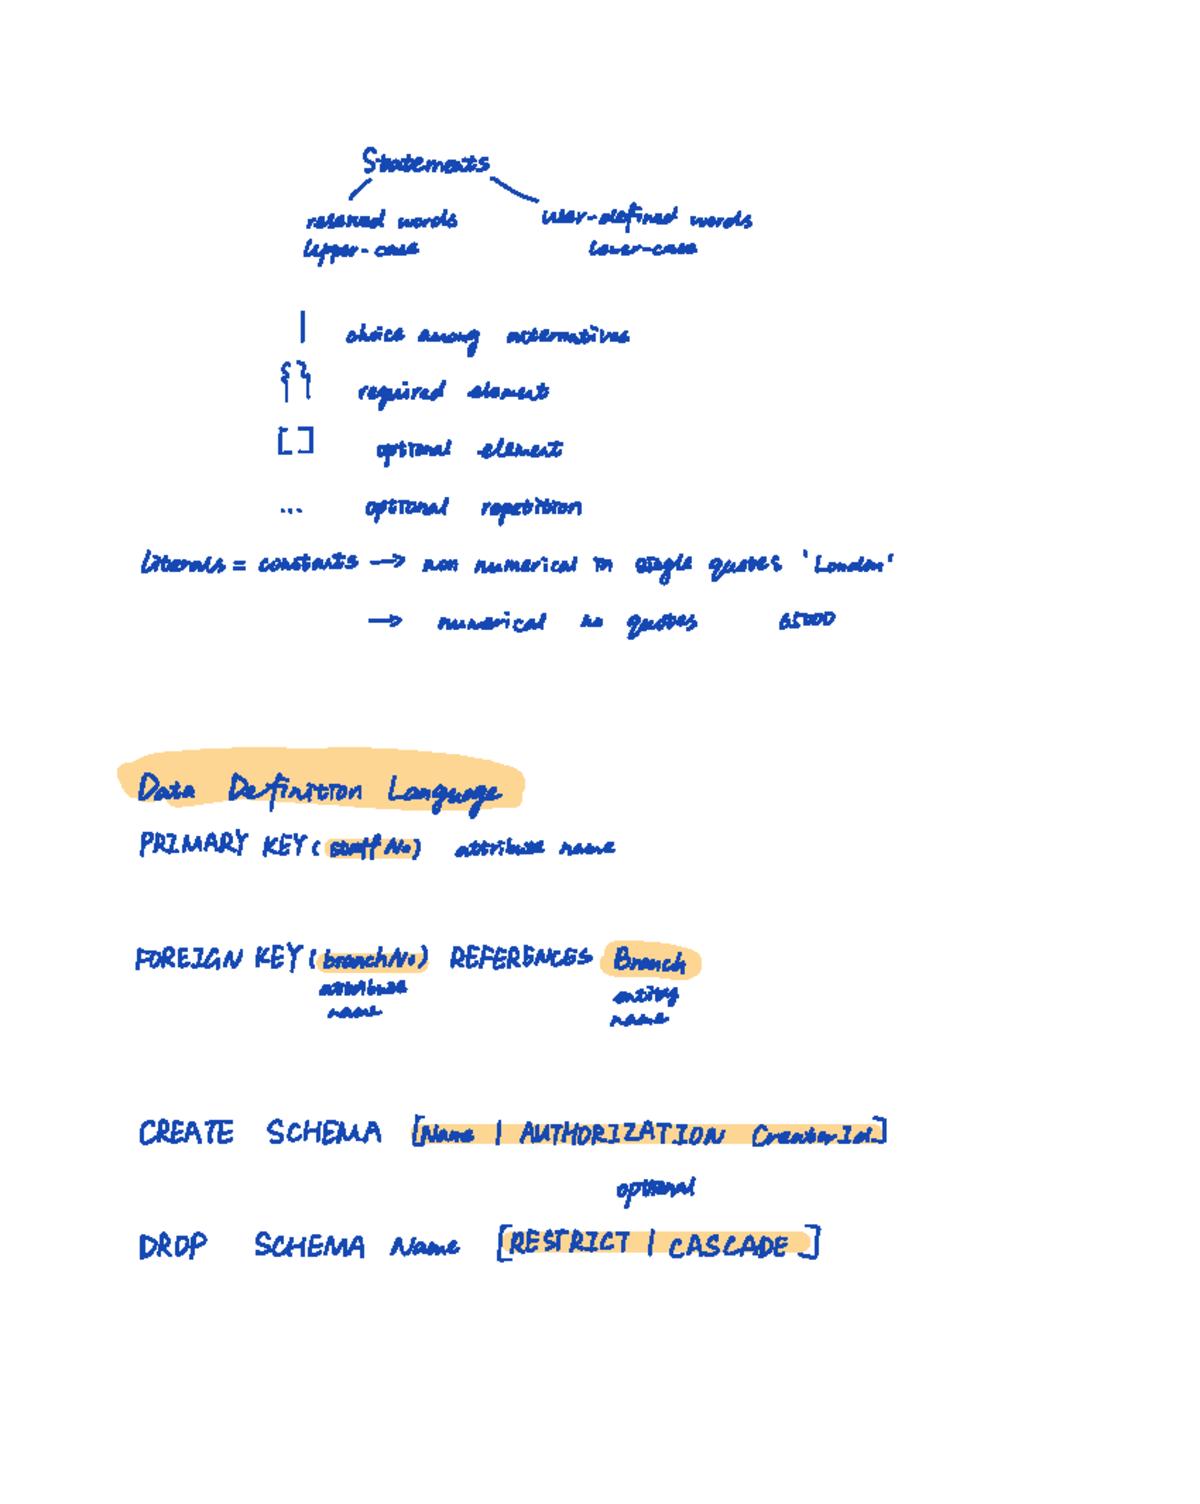 Statements
reserved words user-defined words
upper-case lower-case
| choice among alternatives
{ } required element
[ ] optional element
... optional repetition
literals = constants → non numerical in single quotes 'London'
→ numerical no quotes 65000
Data Definition Language
PRIMARY KEY (staffNo) attribute name
FOREIGN KEY (branchNo) REFERENCES Branch
attribute entity
name name
CREATE SCHEMA [Name | AUTHORIZATION CreatorId]
optional
DROP SCHEMA Name [RESTRICT | CASCADE]